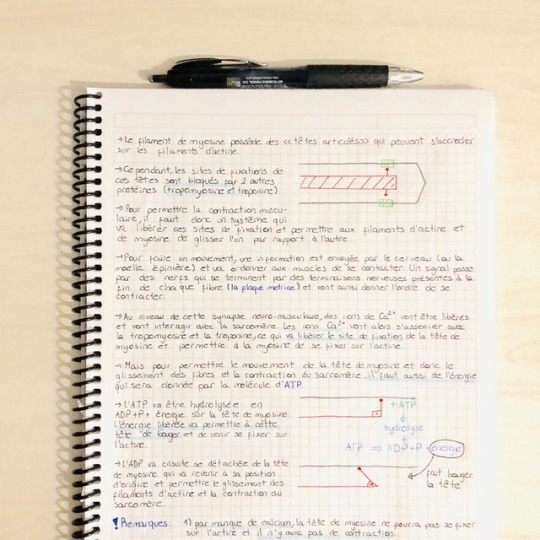 → Le filament de myosine possède des «têtes articulés» qui peuvent s'accrocher
sur les filaments d'actine.
→ Cependant, les sites de fixations de
ces têtes sont bloqués par 2 autres
protéines (tropomyosine et troponine)
→ Pour permettre la contraction muscu-
laire, il faut donc un système qui
va libérer ces sites de fixation et permettre aux filaments d'actine et
de myosine de glisser l'un par rapport à l'autre.
→ Pour faire un mouvement, une information est envoyée par le cerveau (ou la
moelle épinière) et va ordonner aux muscles de se contacter. Un signal passe
par des nerfs qui se terminent par des terminaisons nerveuses présentes à la
fin de chaque fibre (la plaque motrice) et vont ainsi donner l'ordre de se
contracter.
→ Au niveau de cette synapse neuro-musculaire, des ions de Ca²⁺ vont être libérés
et vont interagir avec la sarcomère. les ions Ca²⁺ vont alors s'associer avec
la tropomyosine et la troponine, ce qui va libérer le site de fixation de la tête de
myosine et permettre à la myosine de se fixer sur l'actine.
→ Mais pour permettre le mouvement de la tête de myosine et donc le
glissement des fibres et la contraction du sarcomère, il faut aussi de l'énergie
qui sera donnée par la molécule d'ATP.
→ L'ATP va être hydrolysée en
ADP+P+ énergie sur la tête de myosine.
L'énergie libérée va permettre à cette
tête de bouger et de venir se fixer sur
l'actine.
+ ATP
hydrolyse
ATP ⇒ ADP+P+énergie
→ L'ADP va ensuite se détachée de la tête
de myosine qui va revenir à sa position
d'origine et permettre le glissement des
filaments d'actine et la contraction du
sarcomère.
fait bouger
la tête
! Remarques : 1) par manque de calcium, la tête de myosine ne pourra pas se fixer
sur l'actine et il n'y aura pas de contraction.